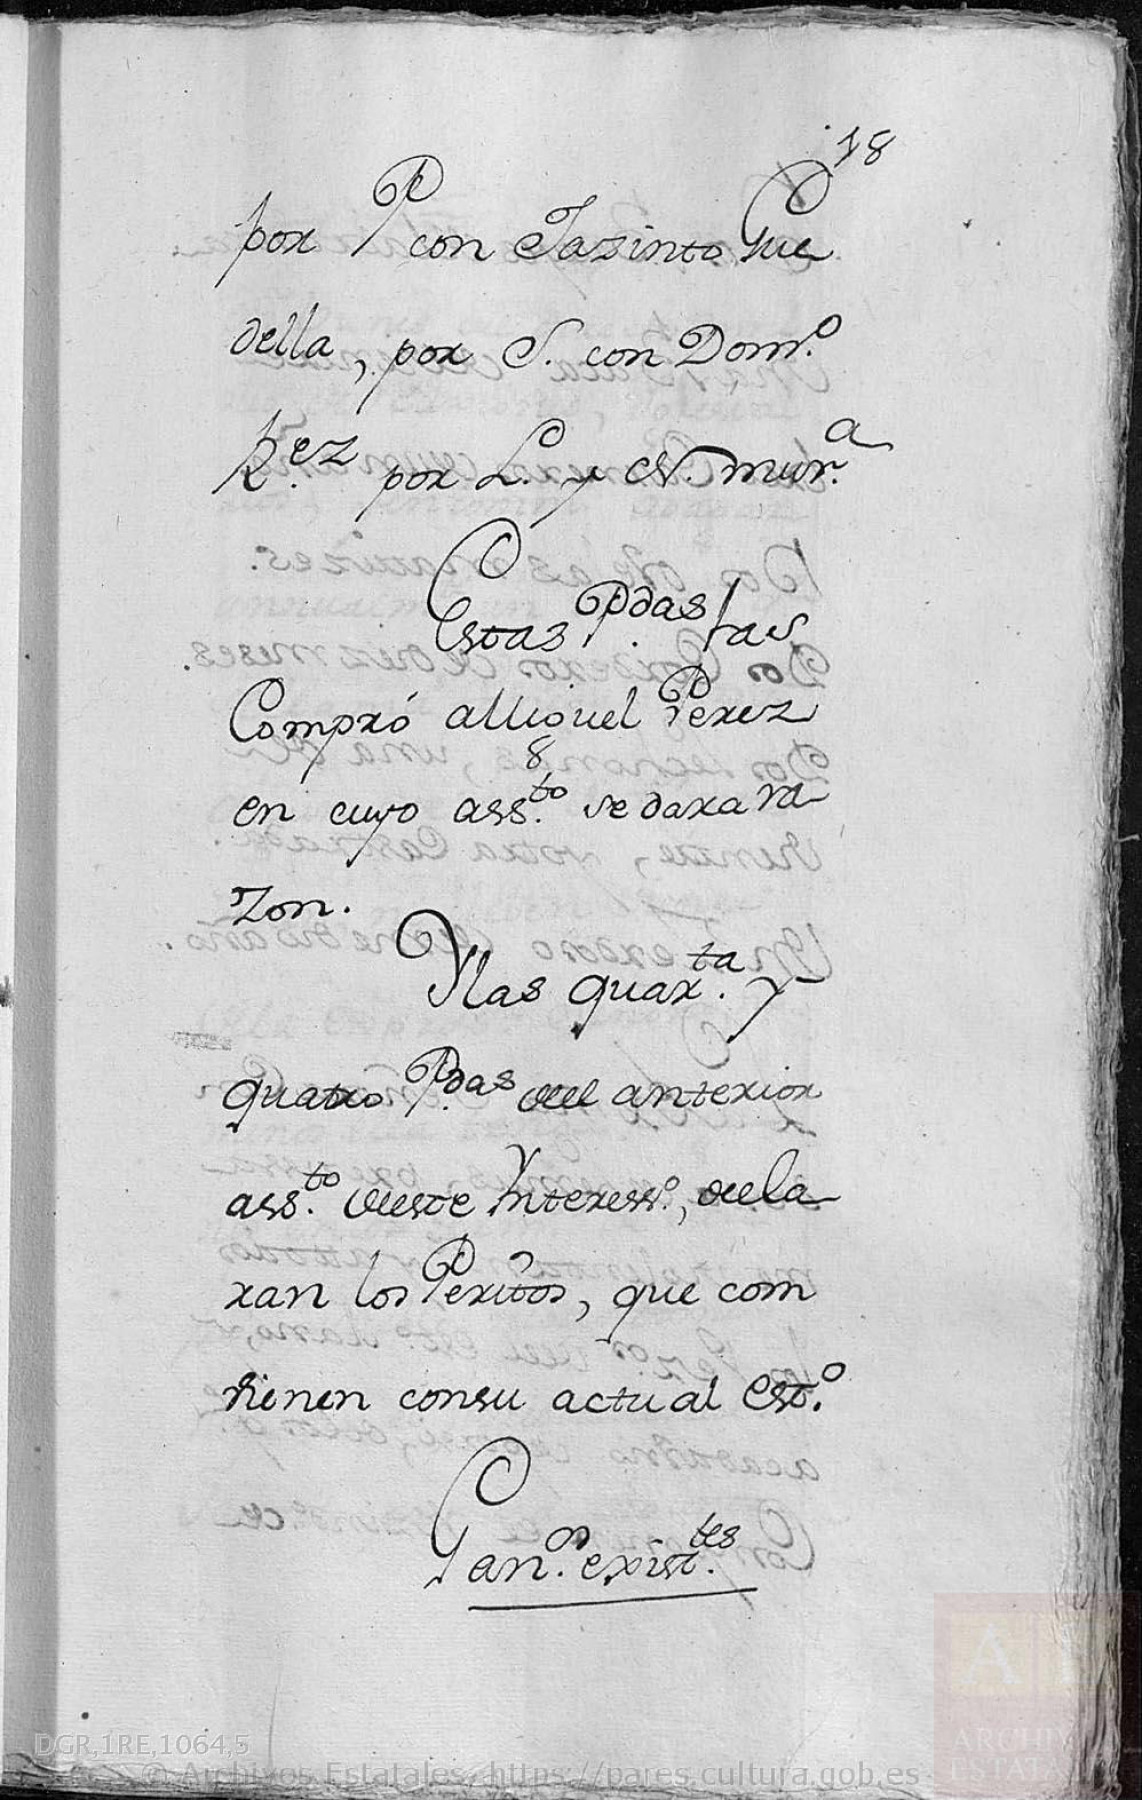 18
por P con Jazinto Gue
della, por S. con Dom.º
Prez por L. y N. mur.ª
Estas P.das las
Compró a Miguel Perez
8
en cuyo ass.to se dara ra
zon.
Y las quar.ta y
quatro P.das del anterior
ass.to deeste Interess.º, decla
ran los Peritos, que com
vienen consu actual est.º
Gan.º exist.tes
DGR,1RE,1064,5
© Archivos Estatales, https://pares.cultura.gob.es
A E
ARCHIV
ESTATA